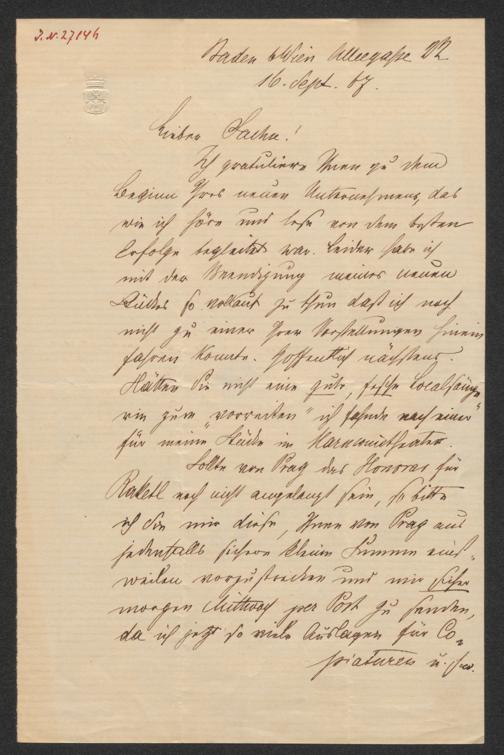 J.N. 27146
Baden b/Wien Alleegasse 22
16. Sept. 67.
Lieber Sacher!
Ich gratuliere Ihnen zu dem
Beginn Ihres neuen Unternehmens, das
wie ich höre und lese von dem besten
Erfolge begleitet war. Leider habe ich
mit der Beendigung meines neuen
Stückes so vollauf zu thun daß ich noch
nicht zu einer Ihrer Vorstellungen hinein
fahren konnte. Hoffentlich nächstens.
Hätten Sie nicht eine gute, fesche Localsänge
rin zum "vorreiten" ich fahnde nach einer
für meine Stücke im Harmonietheater.
Sollte von Prag das Honorar für
Raketl noch nicht angelangt sein, so bitte
ich Sie mir diese, Ihnen von Prag aus
jedenfalls sichere kleine Summe einst=
weilen vorzustrecken und mir sicher
morgen Mittwoch per Post zu senden,
da ich jetzt so viele Auslagen für Co=
piaturen u. s. w.